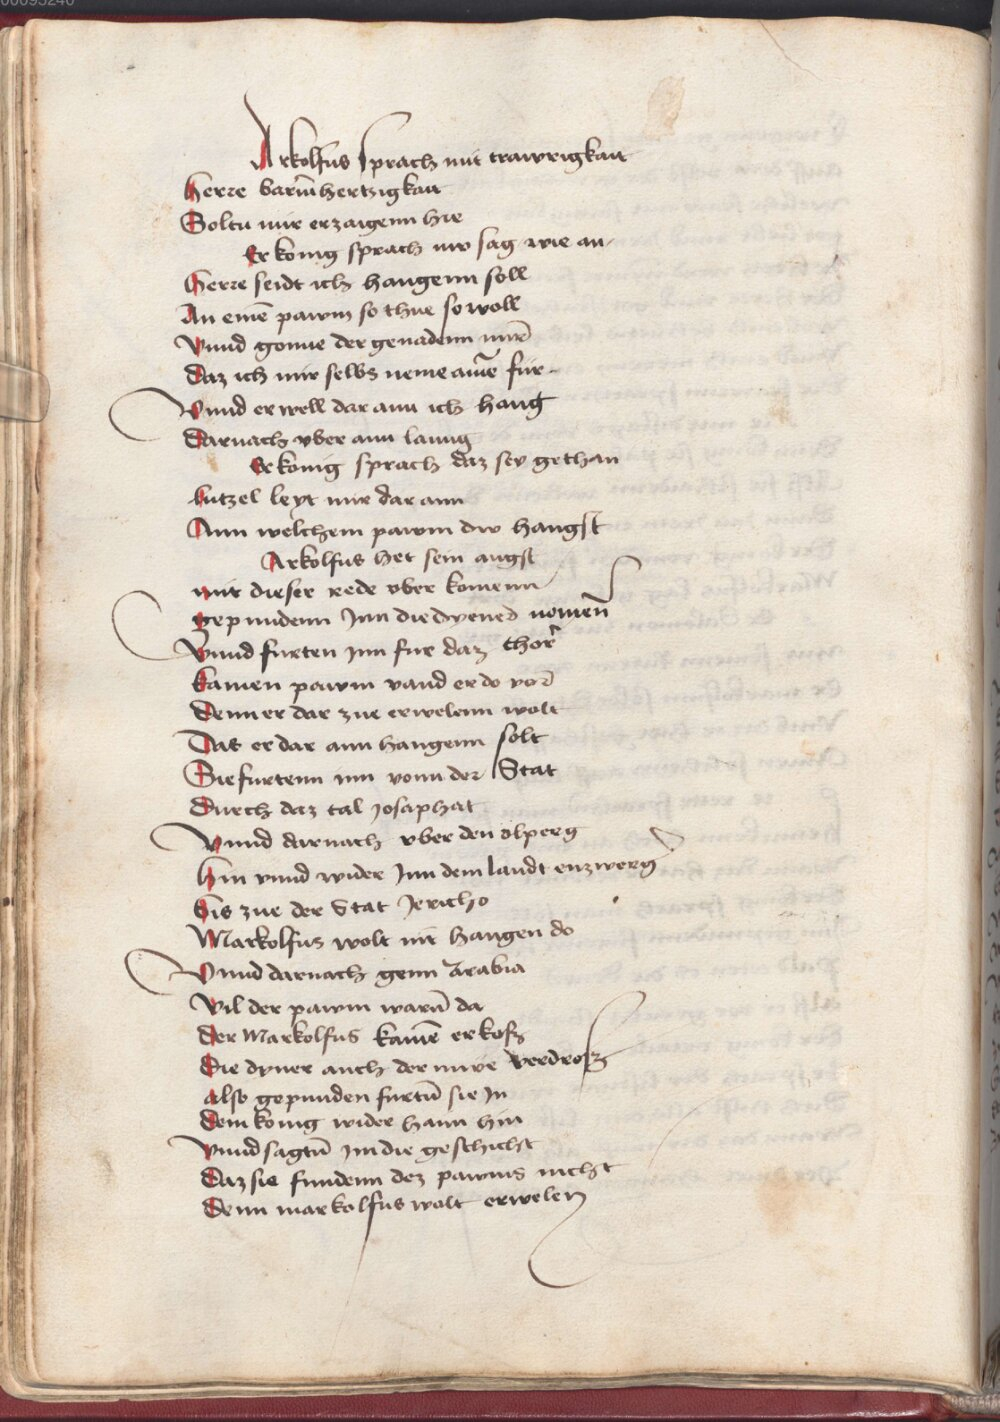 00095240
Arkolfus sprach mit trawrigkait
Herre barmhertzigkait
Soltu mir erzaigenn hie
Er konig sprach nw sag wie an
Herre seidt ich hangenn soll
An einē pawm so thue so woll
Vnnd gonne der genadenn mirē
Daz ich mir selbs neme ainē für
Vnnd er well dar ann ich hang
Darnach vber ann lanng
Er konig sprach daz sey gethan
lutzel leyt mir dar ann
Ann welchem pawm dw hangst
Arkolfus het sein angst
mit dieser rede vber komenn
gepundenn Inn die dyener nomēn
Vnnd furten Jnn fur daz thor
kainen pawm vand er do vor
Denn er dar zue erwelenn wolt
Das er dar ann hangenn solt
Sie furtenn inn vonn der Stat
Durch daz tal Josaphat
Vnnd darnach vber den olperg
hin vnnd wider Inn dem landt enzwerg
bis zue der Stat Jericho
Markolfus wolt nit hangen do
Vnnd darnach genn Arabia
Vil der pawm warn̄ da
Der Markolfus kainē erkoß
Die dyner auch der mwe verdroß
also gepunden furtn̄ sie In
Dem konig wider hann hin
Vnnd sagtn̄ im die geschicht
Daz sie fundenn dez pawms nicht
Denn markolfus wolt erwelen